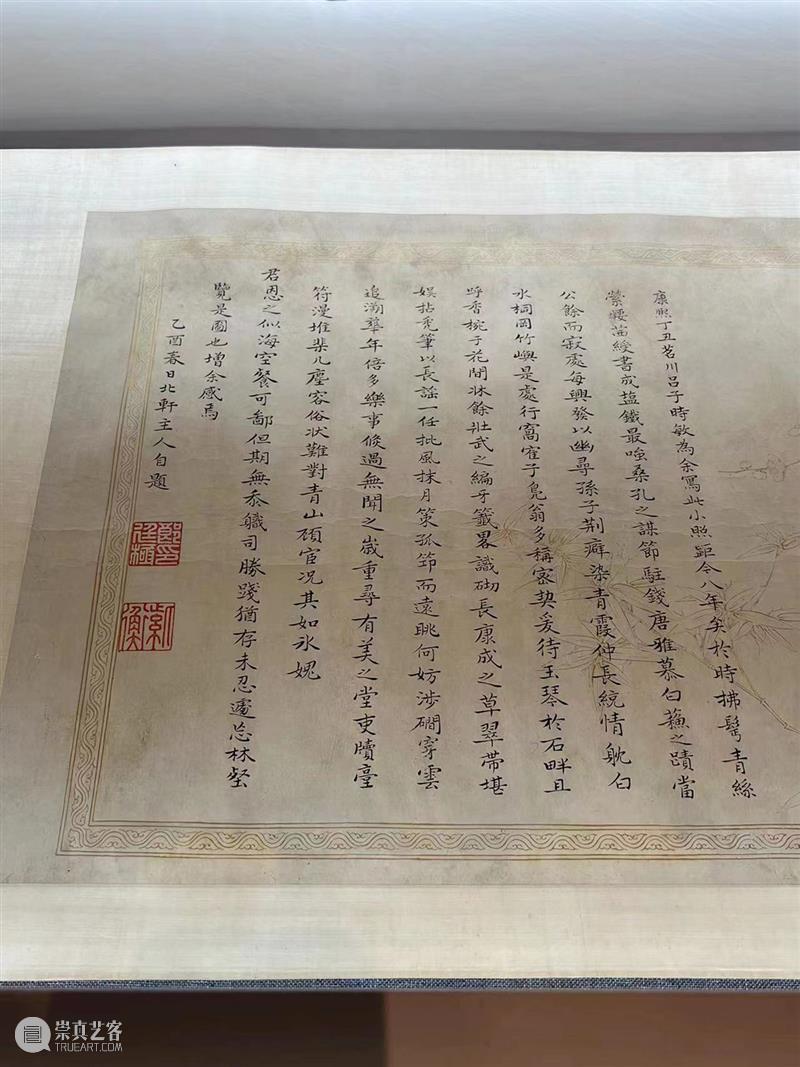 康熙丁丑苕川呂子時敏為余寫此小照距今八年矣於時拂髩青絲
縈腰苖綬書成盐鐵最嗤桑孔之謀節駐錢唐雅慕白蘓之蹟當
公餘而寂處每興發以幽尋孫子荆癖染青霞仲長統情躭白
水桐岡竹嶼是處行窩寉子鳧翁多稱宻契爰待玉琴於石畔且
呼香椀于花閒牀餘壯武之編牙籤畧識砌長康成之草翠帶堪
娱拈秃筆以長謡一任批風抹月策孤筇而遠眺何妨涉磵穿雲
追溯華年倍多樂事倐過無聞之嵗重尋有美之堂吏牘臺
符漫堆棐几塵容俗状難對青山頋宦况其如氷媿
君恩之似海空餐可鄙但期無忝軄司勝踐猶存未忍遽忘林壑
覽是圖也增余感焉
乙酉春日北軒主人自題
崇真艺客
TRUEART.COM